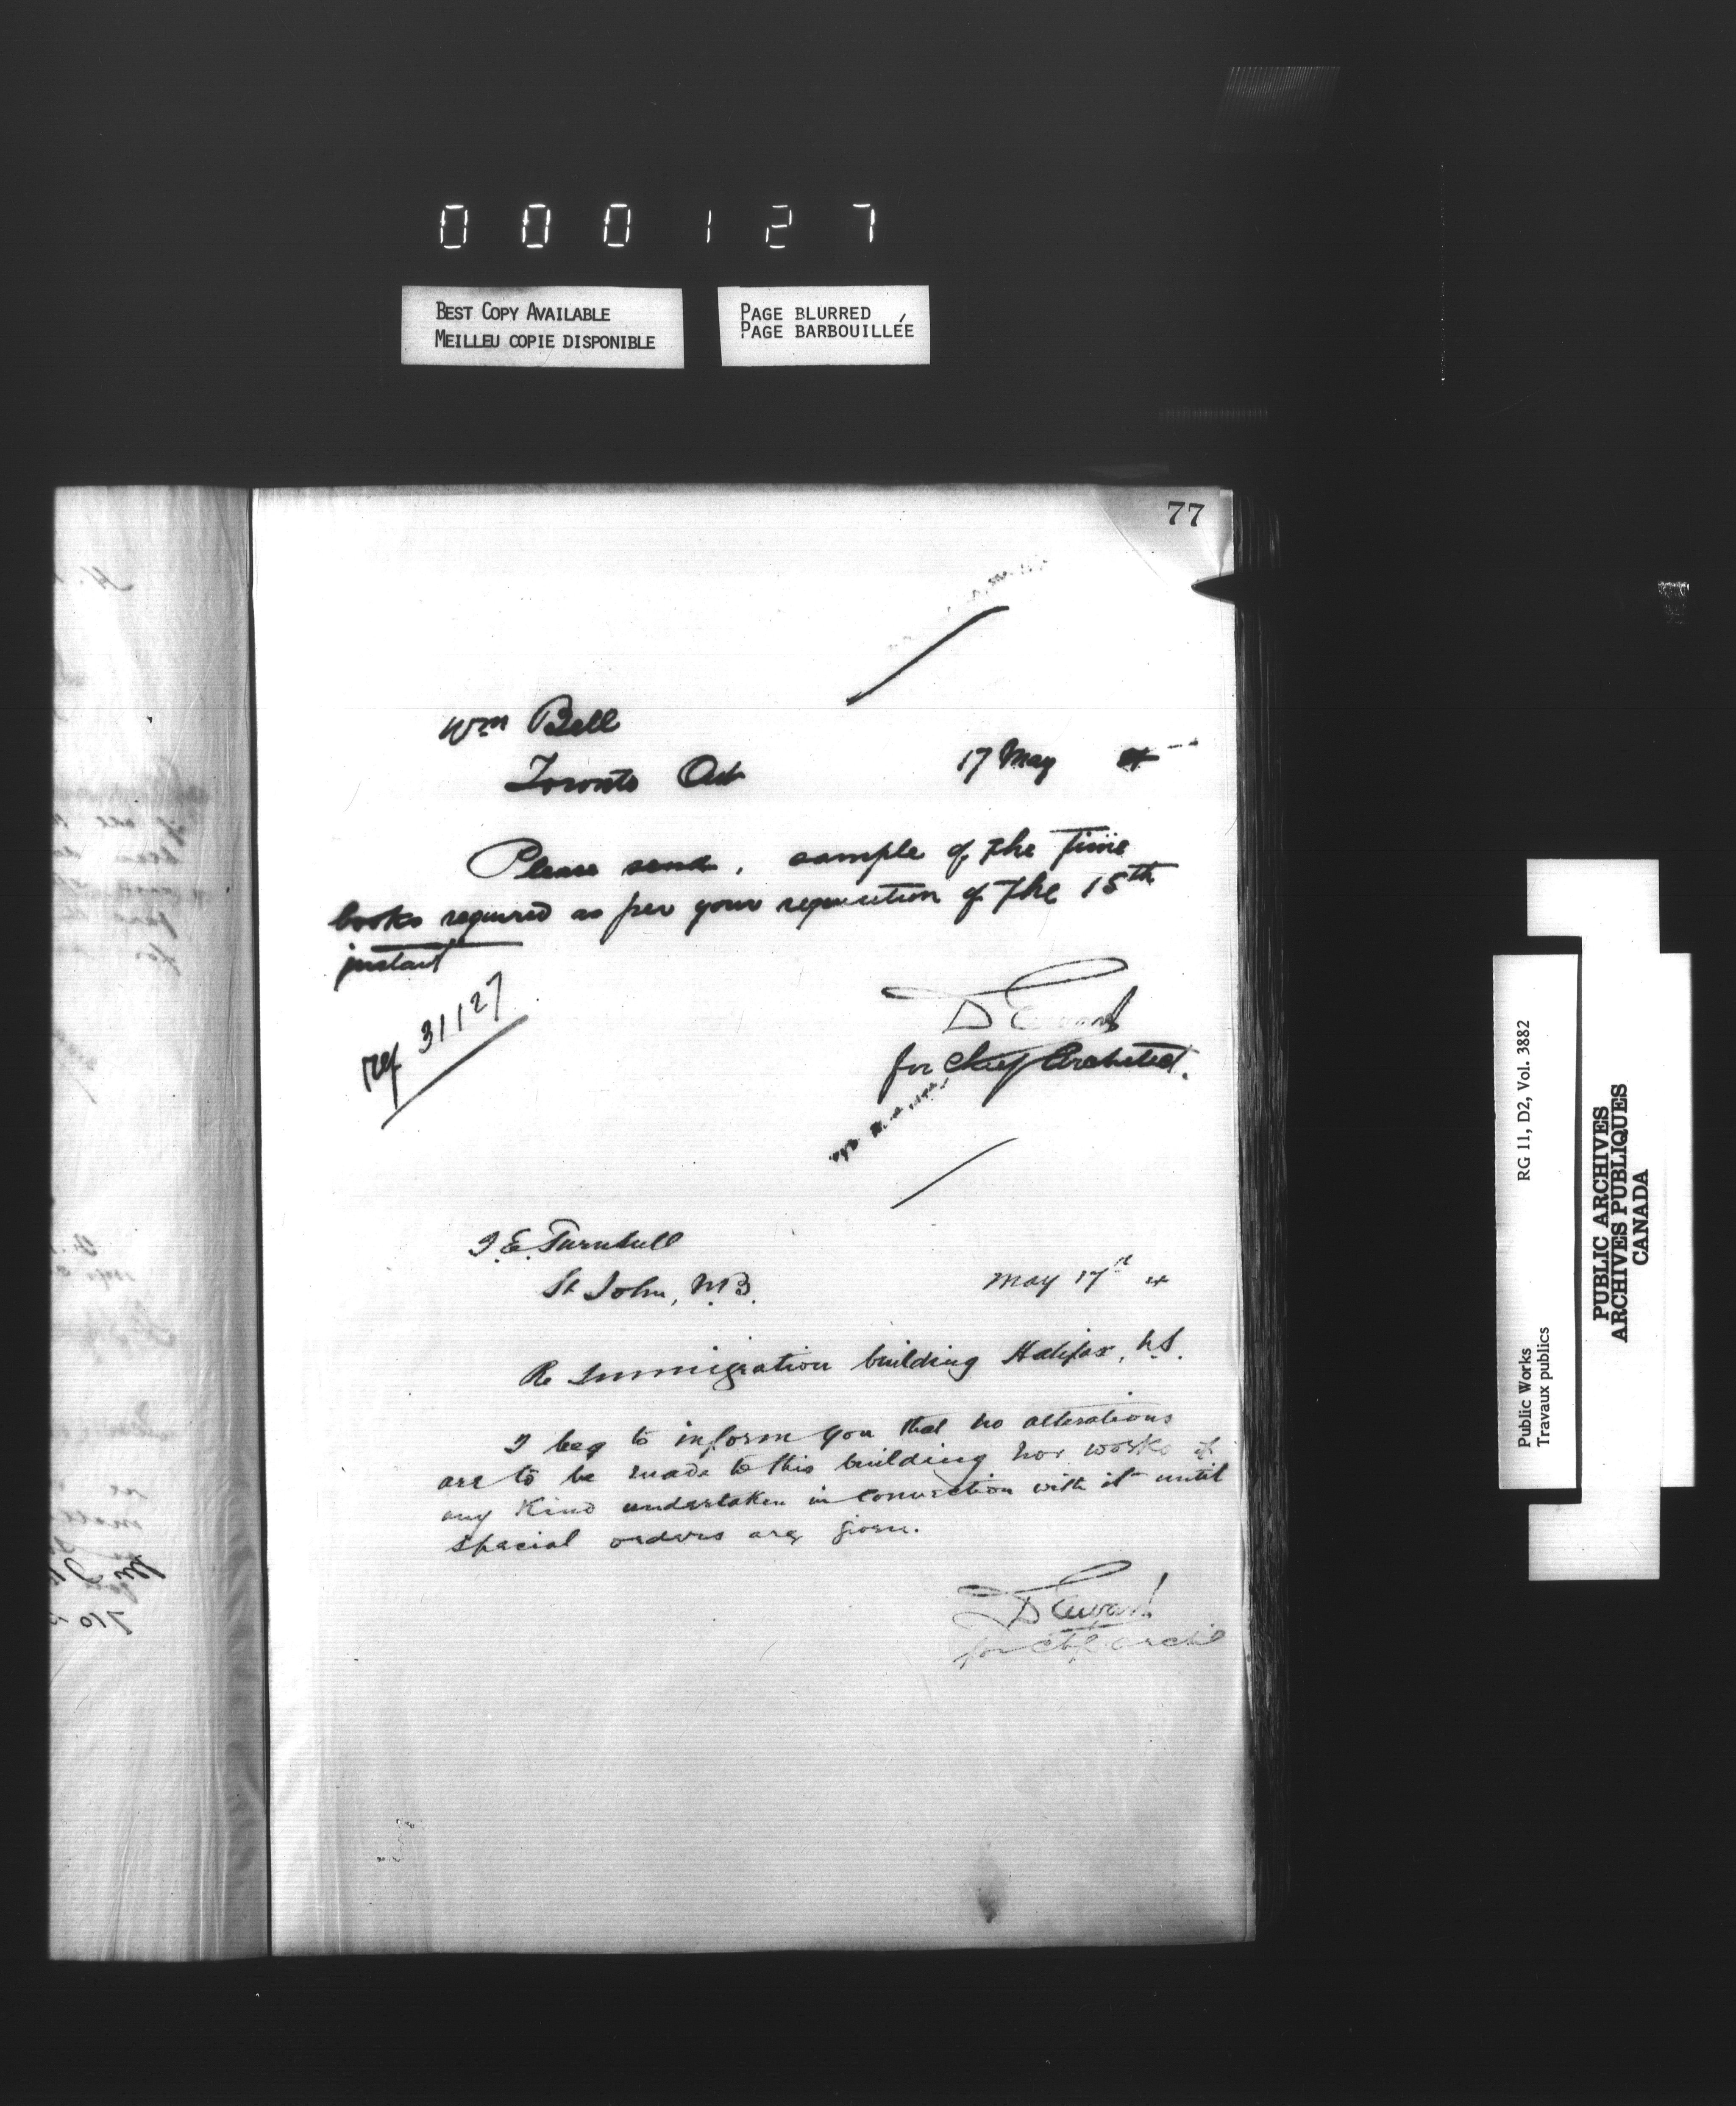 000127
BEST COPY AVAILABLE
MEILLEU COPIE DISPONIBLE
PAGE BLURRED
PAGE BARBOUILLÉE
77
Wm Bell
Toronto Ont
17 May
Please send, sample of the time
books required as per your requisition of the 15th
instant
ref 31127
D Ewart
for Chief Architect.
J. E. Turnbull
St John, N.B.
May 17th
Re Immigration building Halifax, N.S.
I beg to inform you that no alterations
are to be made to this building nor works of
any Kind undertaken in connection with it until
special orders are given.
D Ewart
for Chf archt
RG 11, D2, Vol. 3882
Public Works
Travaux publics
PUBLIC ARCHIVES
ARCHIVES PUBLIQUES
CANADA